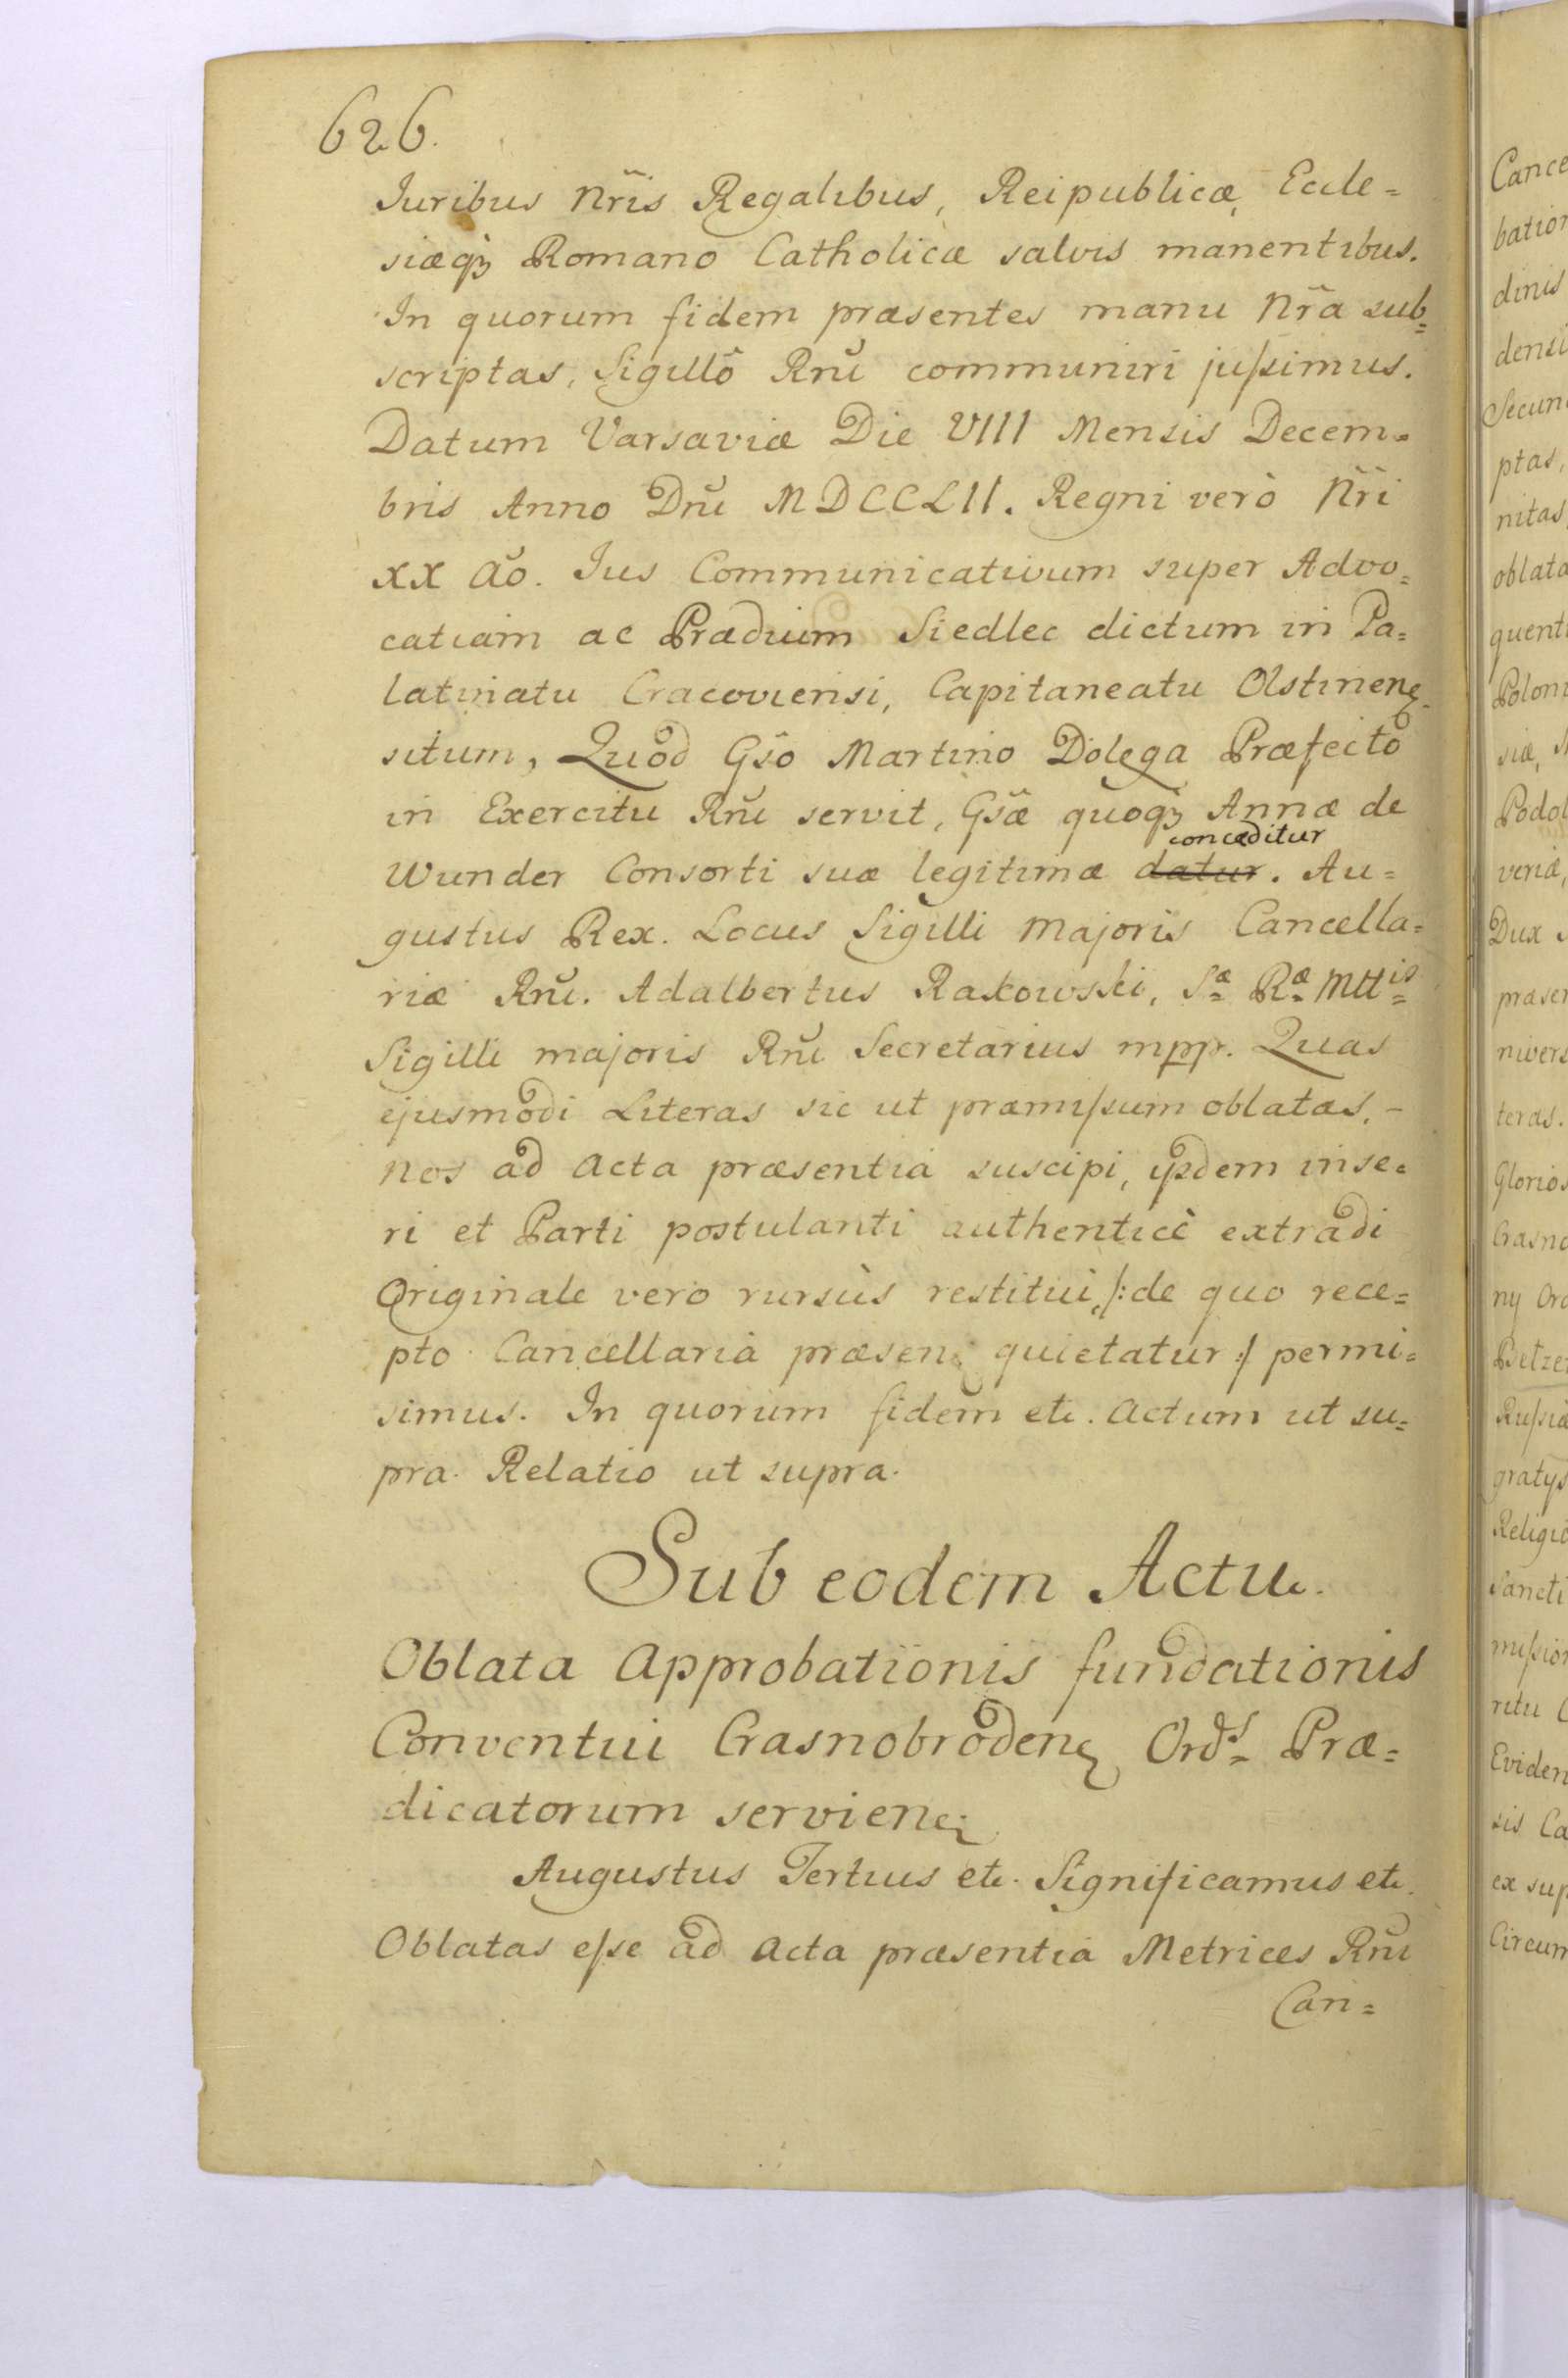 626.
Juribus Nr̃is Regalibus, Reipublicæ, Eccle=
siæq́ꝫ Romano Catholicæ salvis manentibus.
In quorum fidem præsentes manu Nr̃a sub=
scriptas, Sigillô Rñi communiri jussimus.
Datum Varsaviæ Die VIII Mensis Decem=
bris Anno Dñi MDCCLII. Regni verò Nr̃i
XX Aõ. Jus Communicativum super Advo=
catiam ac Prædium Siedlec dictum in Pa=
latinatu Cracoviensi, Capitaneatu Olstinenꝫ.
situm, Quod Gs̃o Martino Dolega Præfectô
in Exercitu Rñi servit, Gs̃æ quoqꝫ Annæ de
conceditur
Wunder Consorti suæ legitimæ datur. Au=
gustus Rex. Locus Sigilli Majoris Cancella=
riæ Rñi. Adalbertus Rakowski, Sæ Ræ Mttis
Sigilli majoris Rñi Secretarius mpp. Quas
ejusmodi Literas sic ut præmissum oblatas, -
nos ad Acta præsentia suscipi, ijsdem inse=
ri et Parti postulanti authenticè extradi
Originale vero rursùs restitui, /: de quo rece=
pto Cancellaria præsenꝫ quietatur :/ permi=
simus. In quorum fidem etc. Actum ut su=
pra. Relatio ut supra.
Sub eodem Actu.
Oblata Approbationis fundationis
Conventui Crasnobrodenꝫ Ordis Præ=
dicatorum servienꝫ
Augustus Tertius etc. Significamus etc.
Oblatas esse ad Acta præsentia Metrices Rñi
Can=
Cance
bation
dinis
densi
Secun
ptas,
nitas
oblata
quenti
Poloni
siæ, M
Podol
veriæ,
Dux
præsen
nivers
teras.
Glorios
Crasno
ny Ord
Betzen
Russiæ
gratys
Religio
Sancti
mission
ritu C
Eviden
sis Ca
ex sup
Circum